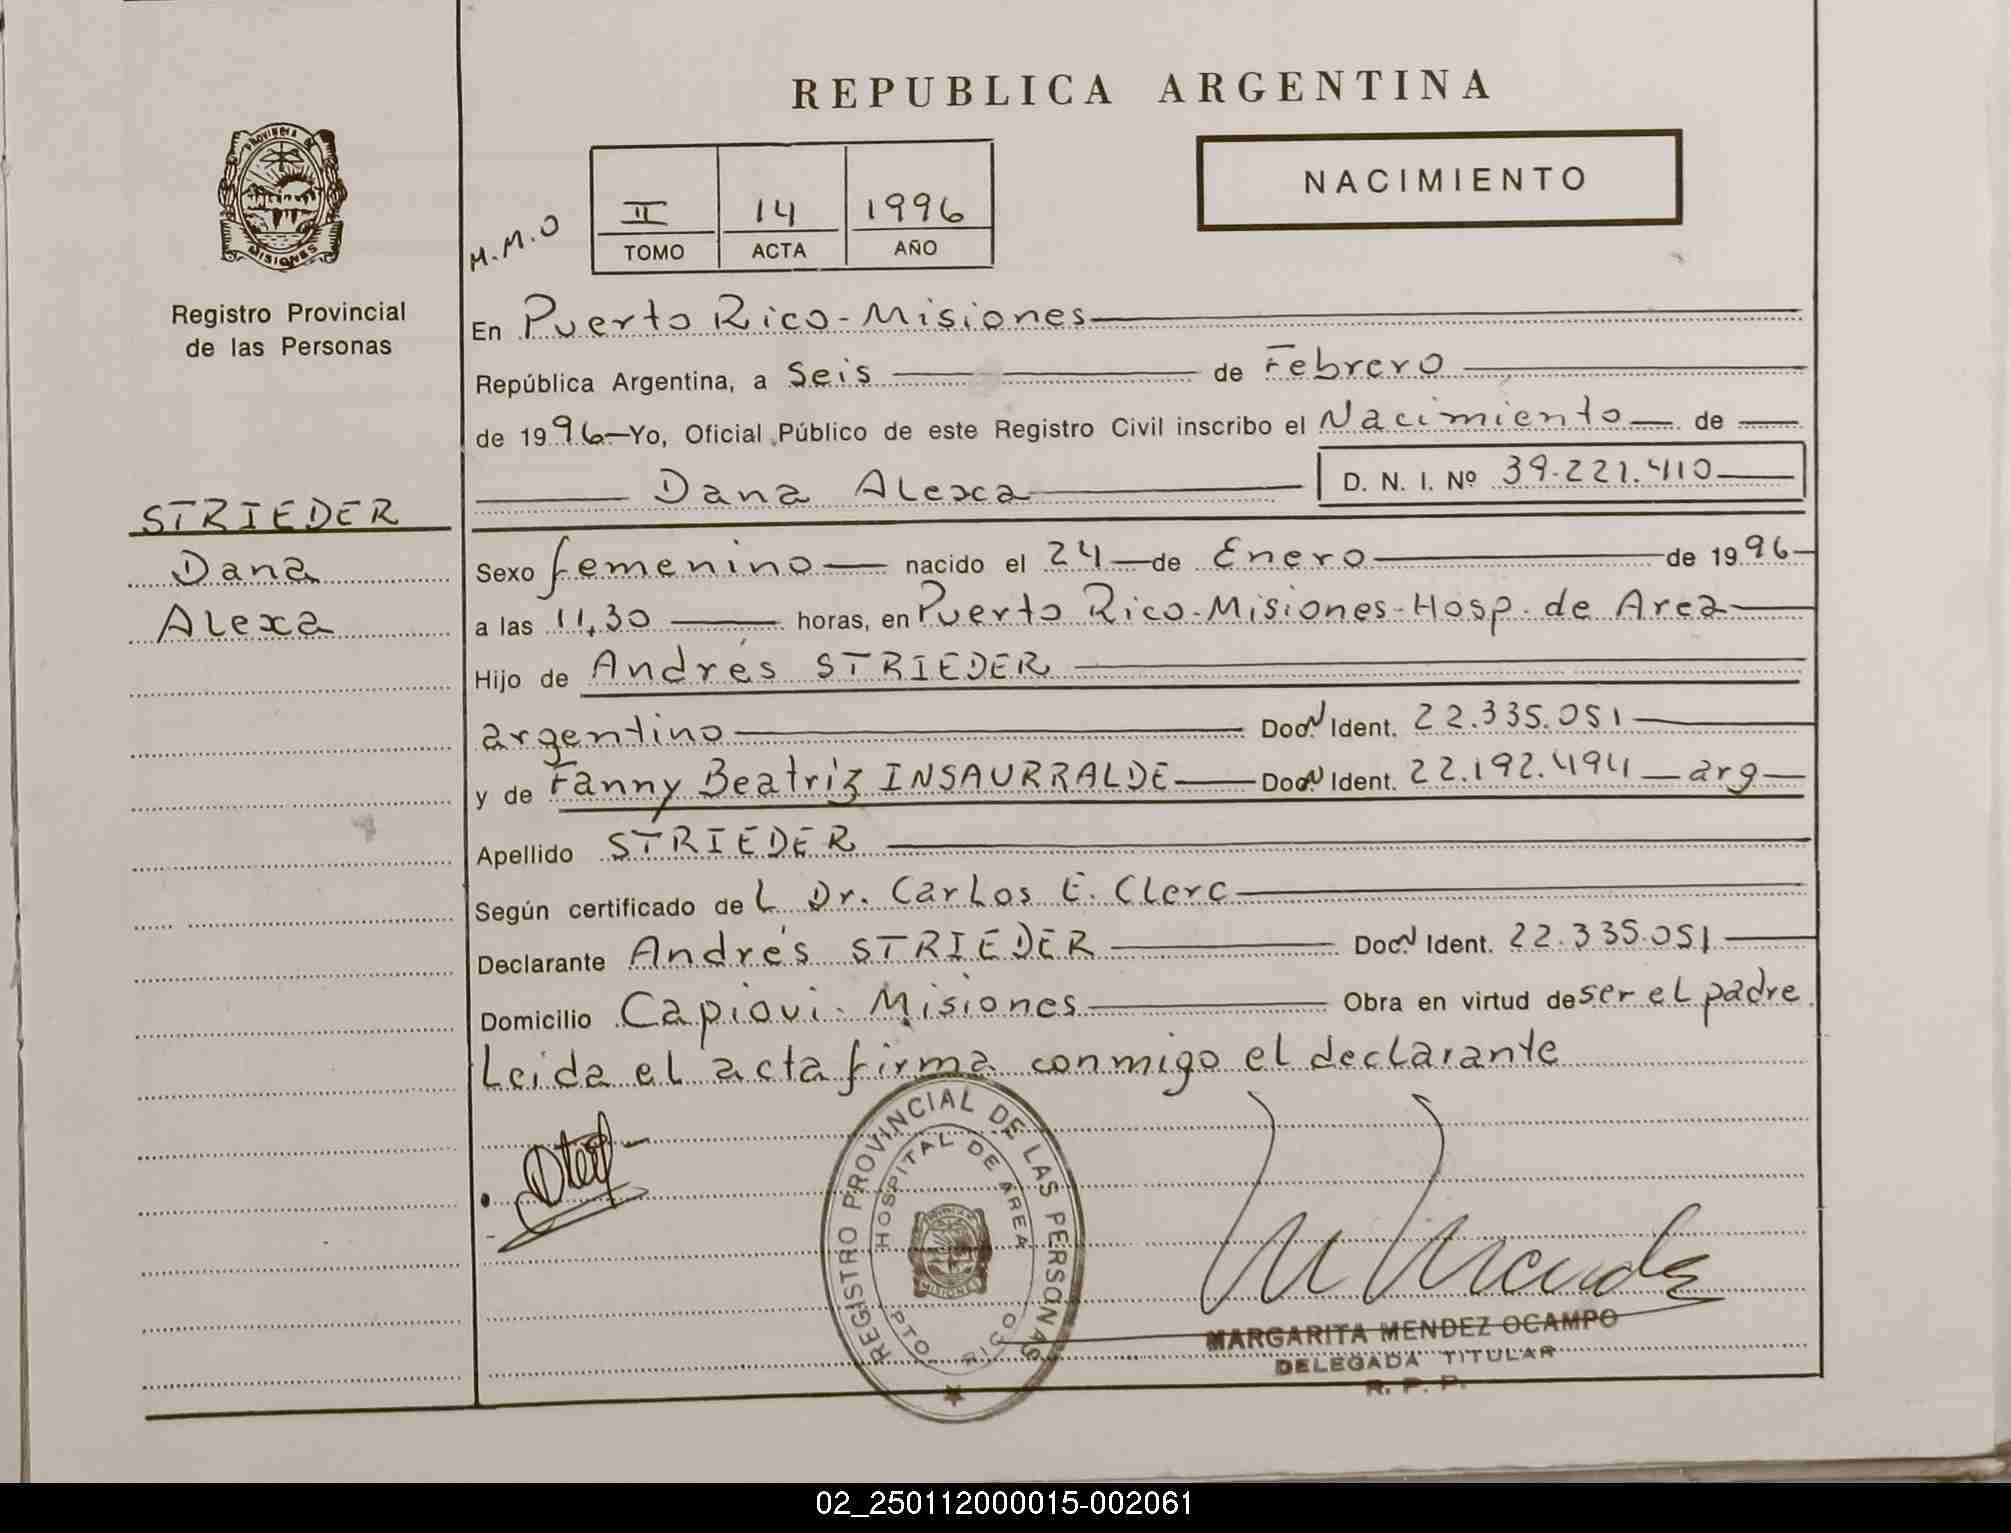 REPUBLICA ARGENTINA
PROVINCIA DE
MISIONES
Registro Provincial
de las Personas
M.M.O
II 14 1996
TOMO ACTA AÑO
NACIMIENTO
En Puerto Rico - Misiones
República Argentina, a Seis de Febrero
de 1996 Yo, Oficial Público de este Registro Civil inscribo el Nacimiento de
Dana Alexa D. N. I. Nº 39.221.410
STRIEDER
Dana
Alexa
Sexo femenino nacido el 24 de Enero de 1996
a las 11,30 horas, en Puerto Rico-Misiones-Hosp. de Area
Hijo de Andrés STRIEDER
argentino Doc. N Ident. 22.335.051
y de Fanny Beatriz INSAURRALDE Doc. N Ident. 22.192.494 arg
Apellido STRIEDER
Según certificado de L Dr. Carlos E. Clerc
Declarante Andrés STRIEDER Doc. N Ident. 22.335.051
Domicilio Capiovi - Misiones Obra en virtud de ser el padre
Leida el acta firma conmigo el declarante
REGISTRO PROVINCIAL DE LAS PERSONAS
HOSPITAL DE AREA
PTO RICO
MISIONES
MARGARITA MENDEZ OCAMPO
DELEGADA TITULAR
R. P. P.
02_250112000015-002061